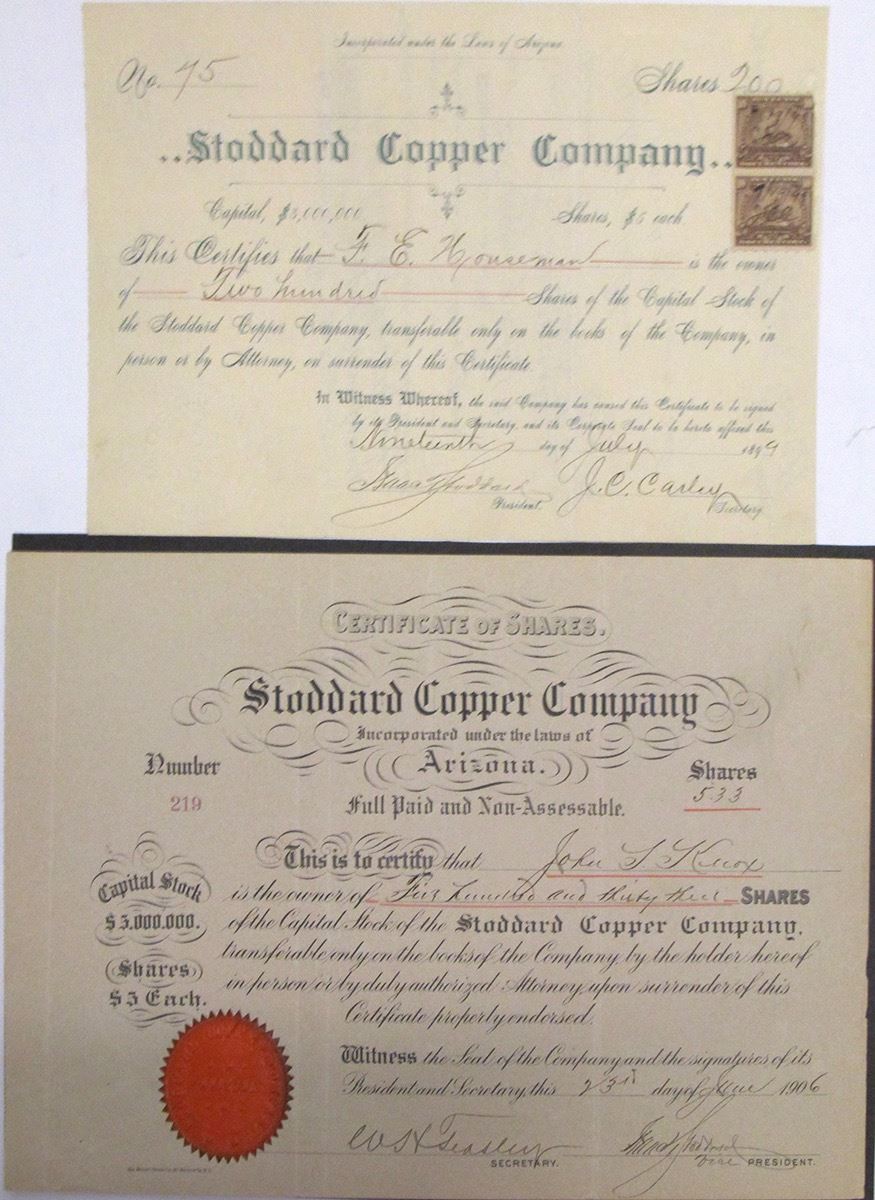 Incorporated under the Laws of Arizona
No. 75
Shares 200
..Stoddard Copper Company..
Capital, $3,000,000
Shares, $5 each
This Certifies that F. E. Houseman is the owner
of Two hundred Shares of the Capital Stock of
the Stoddard Copper Company, transferable only on the books of the Company, in
person or by Attorney, on surrender of this Certificate.
In Witness Whereof, the said Company has caused this Certificate to be signed
by its President and Secretary, and its Corporate Seal to be hereto affixed this
Nineteenth day of July 1899
Isaac T Stoddard J. C. Carley
President. Secretary.
CERTIFICATE OF SHARES.
Stoddard Copper Company
Incorporated under the laws of
Arizona.
Number
219
Shares
533
Full Paid and Non-Assessable.
This is to certify that John S Knox
is the owner of Five hundred and thirty three SHARES
of the Capital Stock of the Stoddard Copper Company,
transferable only on the books of the Company by the holder hereof
in person or by duly authorized Attorney upon surrender of this
Certificate properly endorsed.
Capital Stock
$3,000.000.
Shares
$5 Each.
Witness the Seal of the Company and the signatures of its
President and Secretary, this 23rd day of June 1906
W H Teasley Isaac T Stoddard
SECRETARY. Vice PRESIDENT.